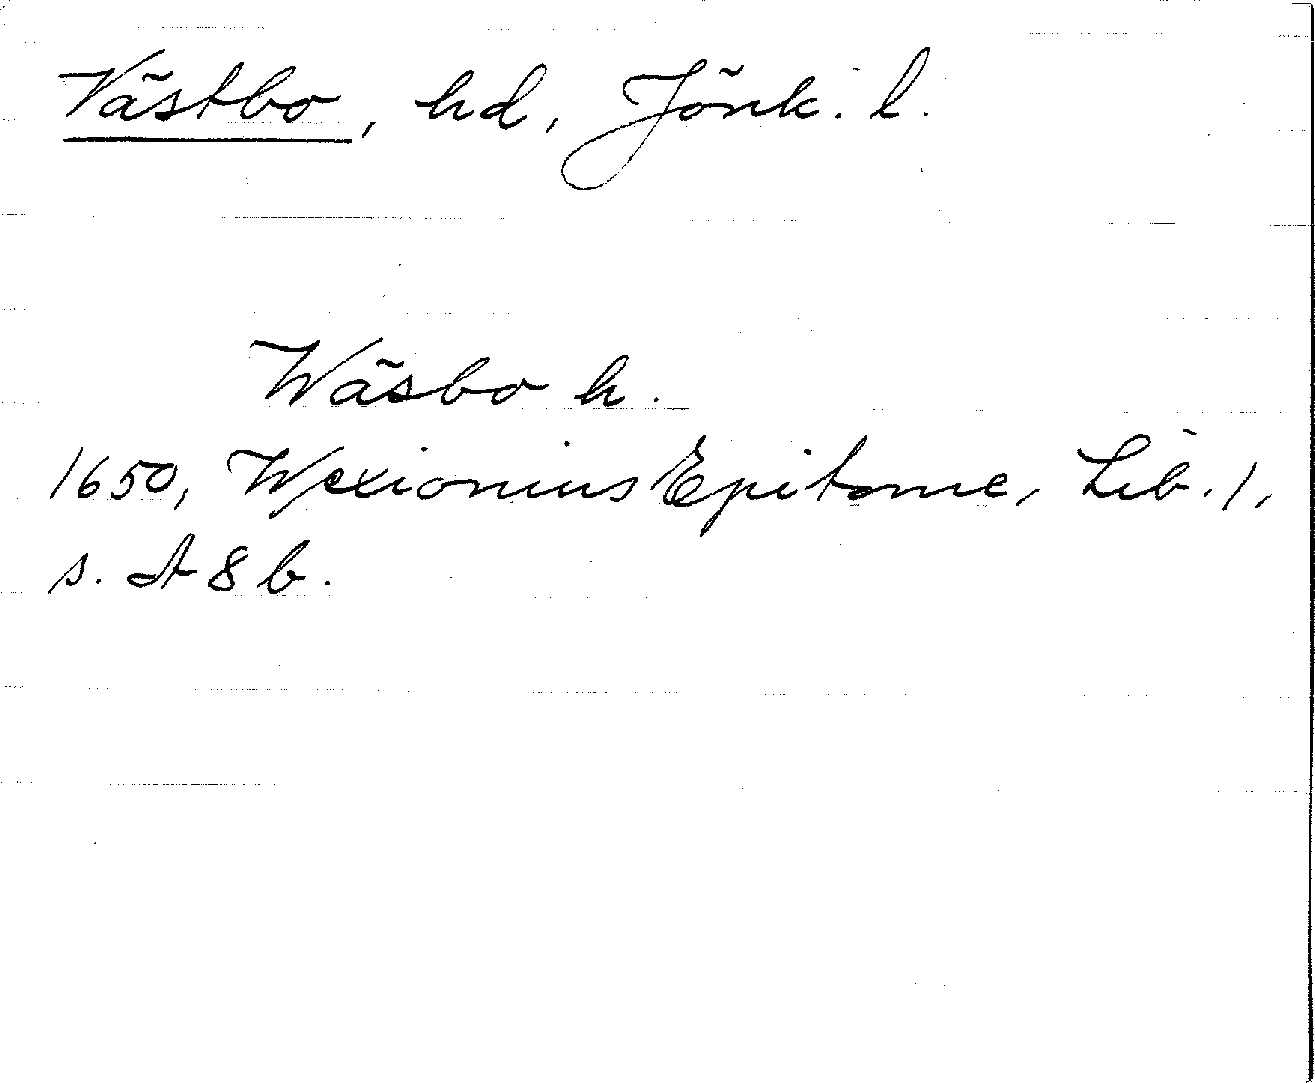 Västbo, hd, Jönk. l.
Wäsbo h.
1650, Wexionius Epitome, Lib. 1,
s. A 8 b.